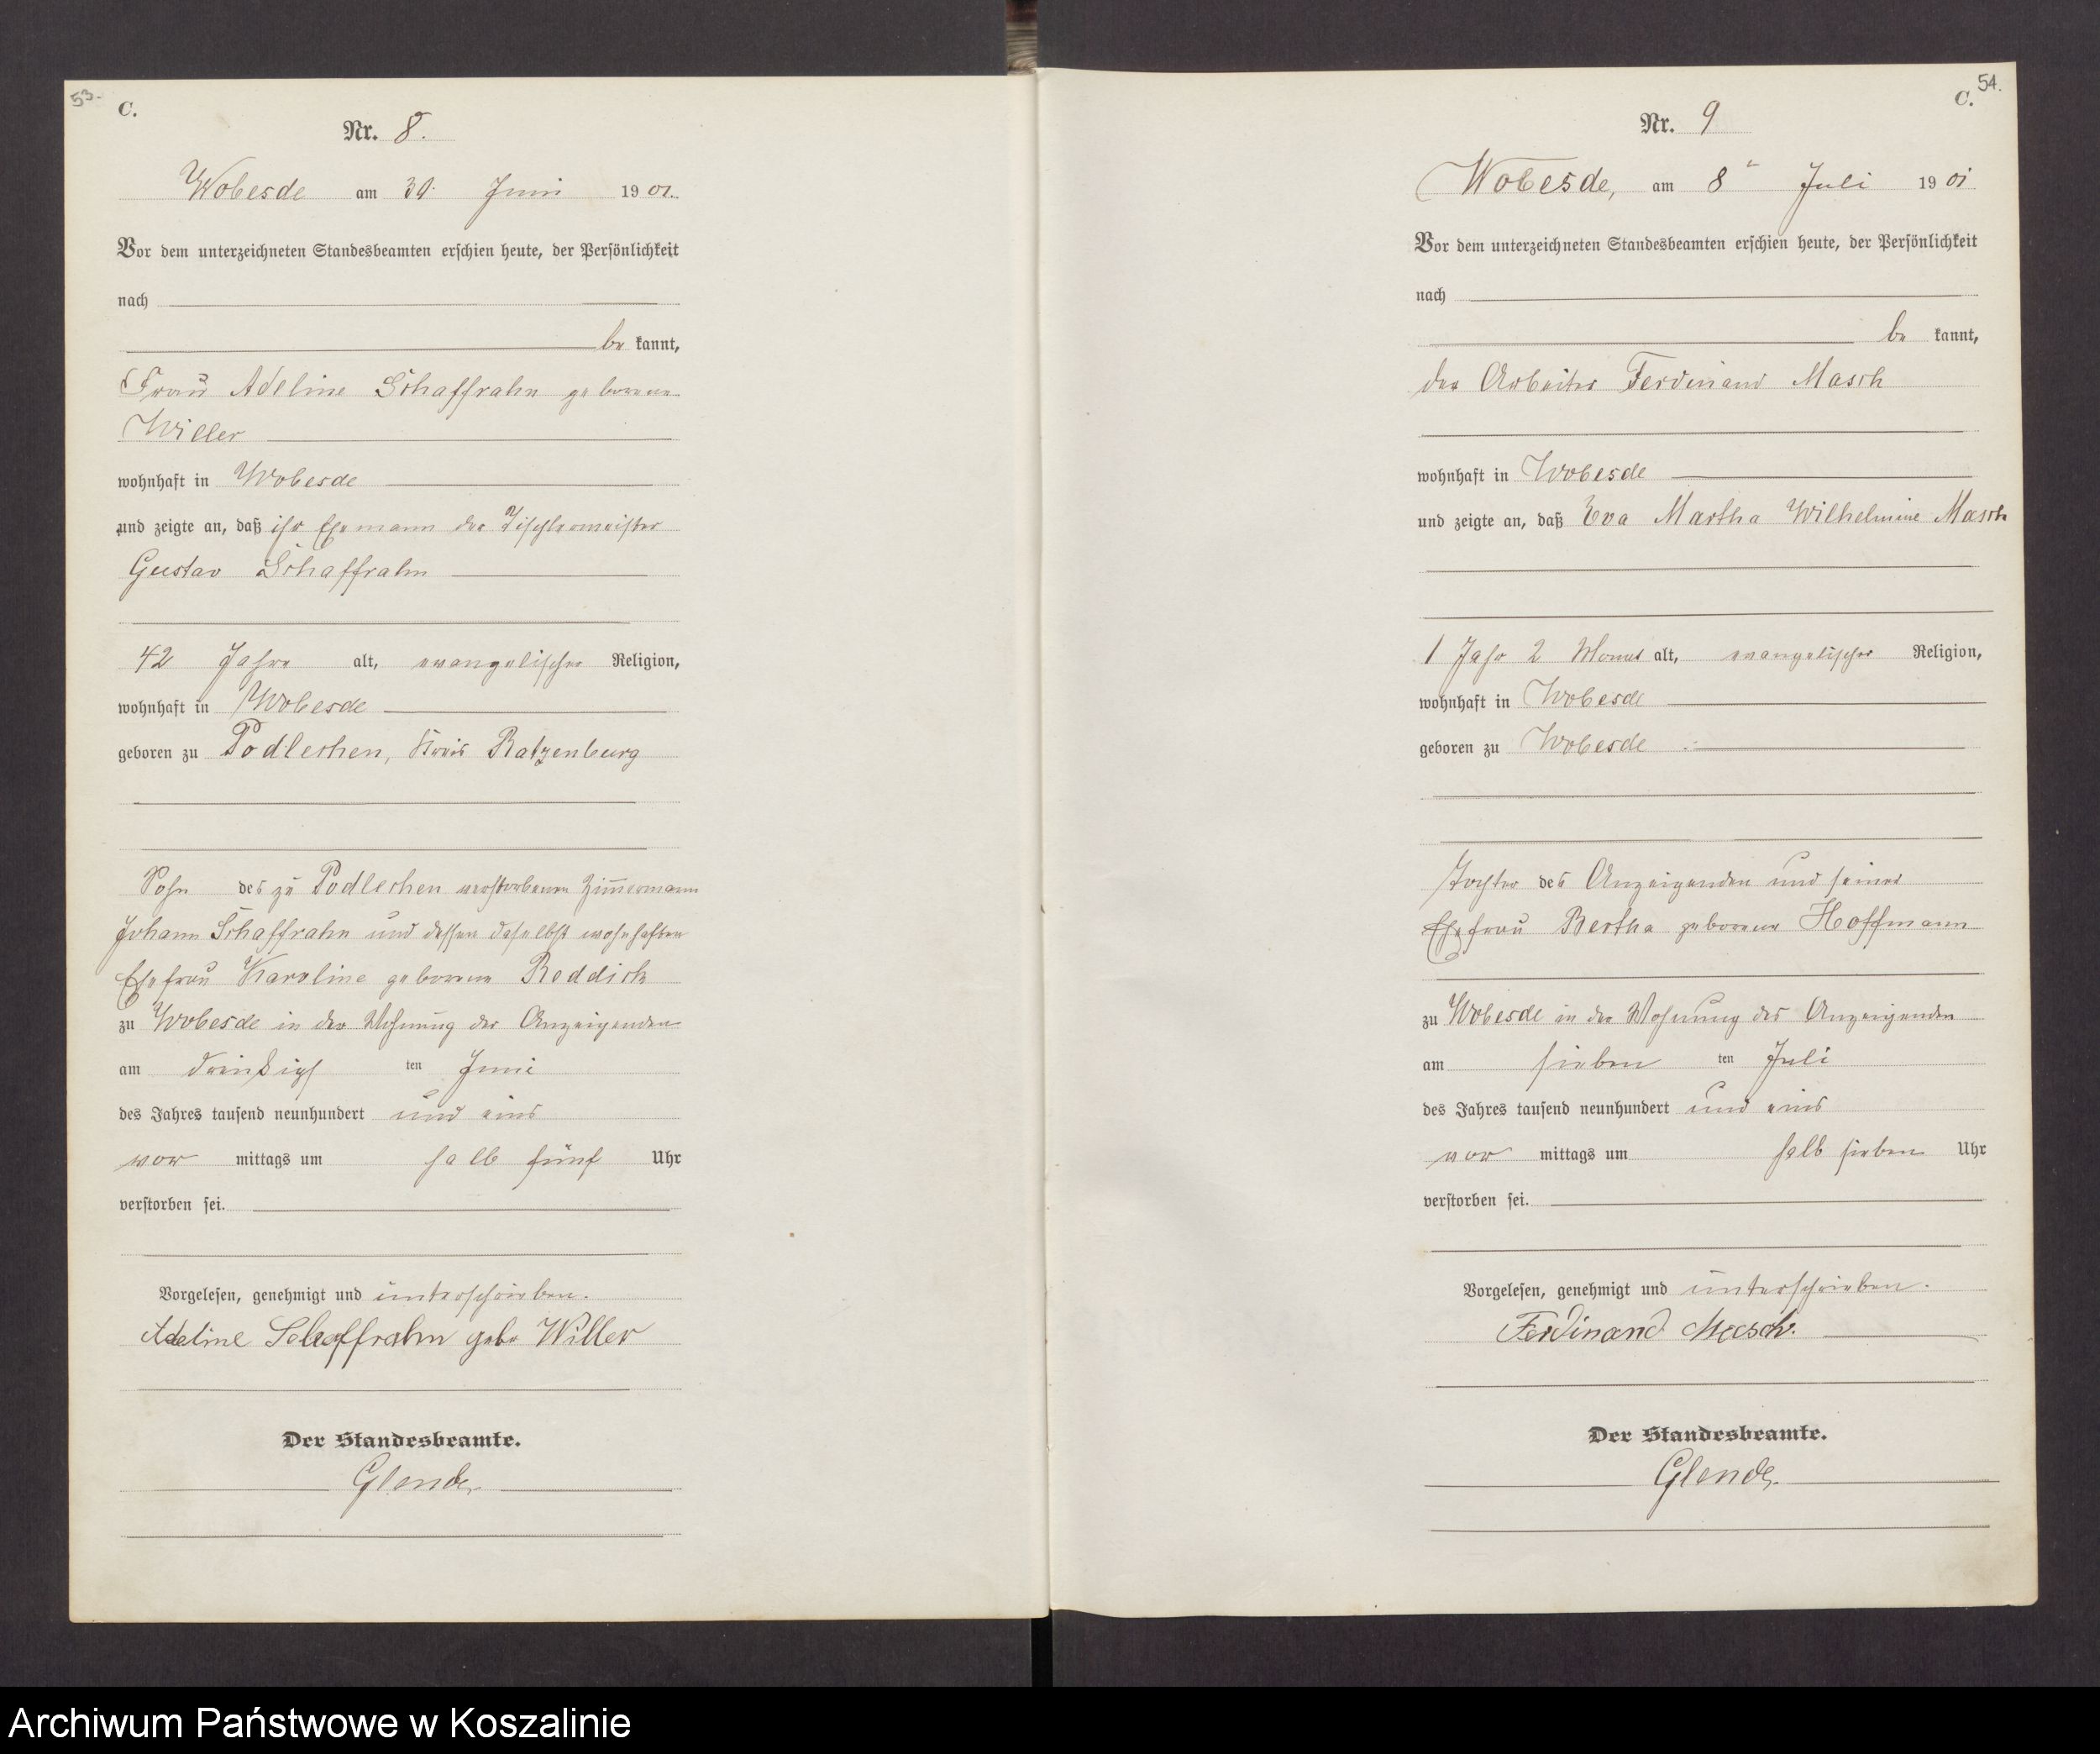 53.
C.
Nr. 8.
Wobesde am 30. Juni 1901.
Vor dem unterzeichneten Standesbeamten erschien heute, der Persönlichkeit
nach
be kannt,
Frau Adeline Schaffrahn geborene
Willer
wohnhaft in Wobesde
und zeigte an, daß ihr Ehemann der Tischlermeister
Gustav Schaffrahn
42 Jahre alt, evangelischer Religion,
wohnhaft in Wobesde
geboren zu Podlechen, Kreis Ratzenburg
Sohn des zu Podlechen verstorbenen Zimmermann
Johann Schaffrahn und dessen daselbst wohnhaften
Ehefrau Karoline geborene Reddich
zu Wobesde in der Wohnung der Anzeigenden
am dreißigsten Juni
des Jahres tausend neunhundert und eins
vor mittags um halb fünf Uhr
verstorben sei.
Vorgelesen, genehmigt und unterschrieben.
Adeline Schaffrahn geb. Willer
Der Standesbeamte.
Glende
54.
C.
Nr. 9
Wobesde, am 8ten Juli 1901
Vor dem unterzeichneten Standesbeamten erschien heute, der Persönlichkeit
nach
be kannt,
der Arbeiter Ferdinand Masch
wohnhaft in Wobesde
und zeigte an, daß Eva Martha Wilhelmine Masch
1 Jahr 2 Monat alt, evangelischer Religion,
wohnhaft in Wobesde
geboren zu Wobesde
Tochter des Anzeigenden und seiner
Ehefrau Bertha geborene Hoffmann
zu Wobesde in der Wohnung des Anzeigenden
am sieben ten Juli
des Jahres tausend neunhundert und eins
vor mittags um halb sieben Uhr
verstorben sei.
Vorgelesen, genehmigt und unterschrieben.
Ferdinand Masch.
Der Standesbeamte.
Glende
Archiwum Państwowe w Koszalinie